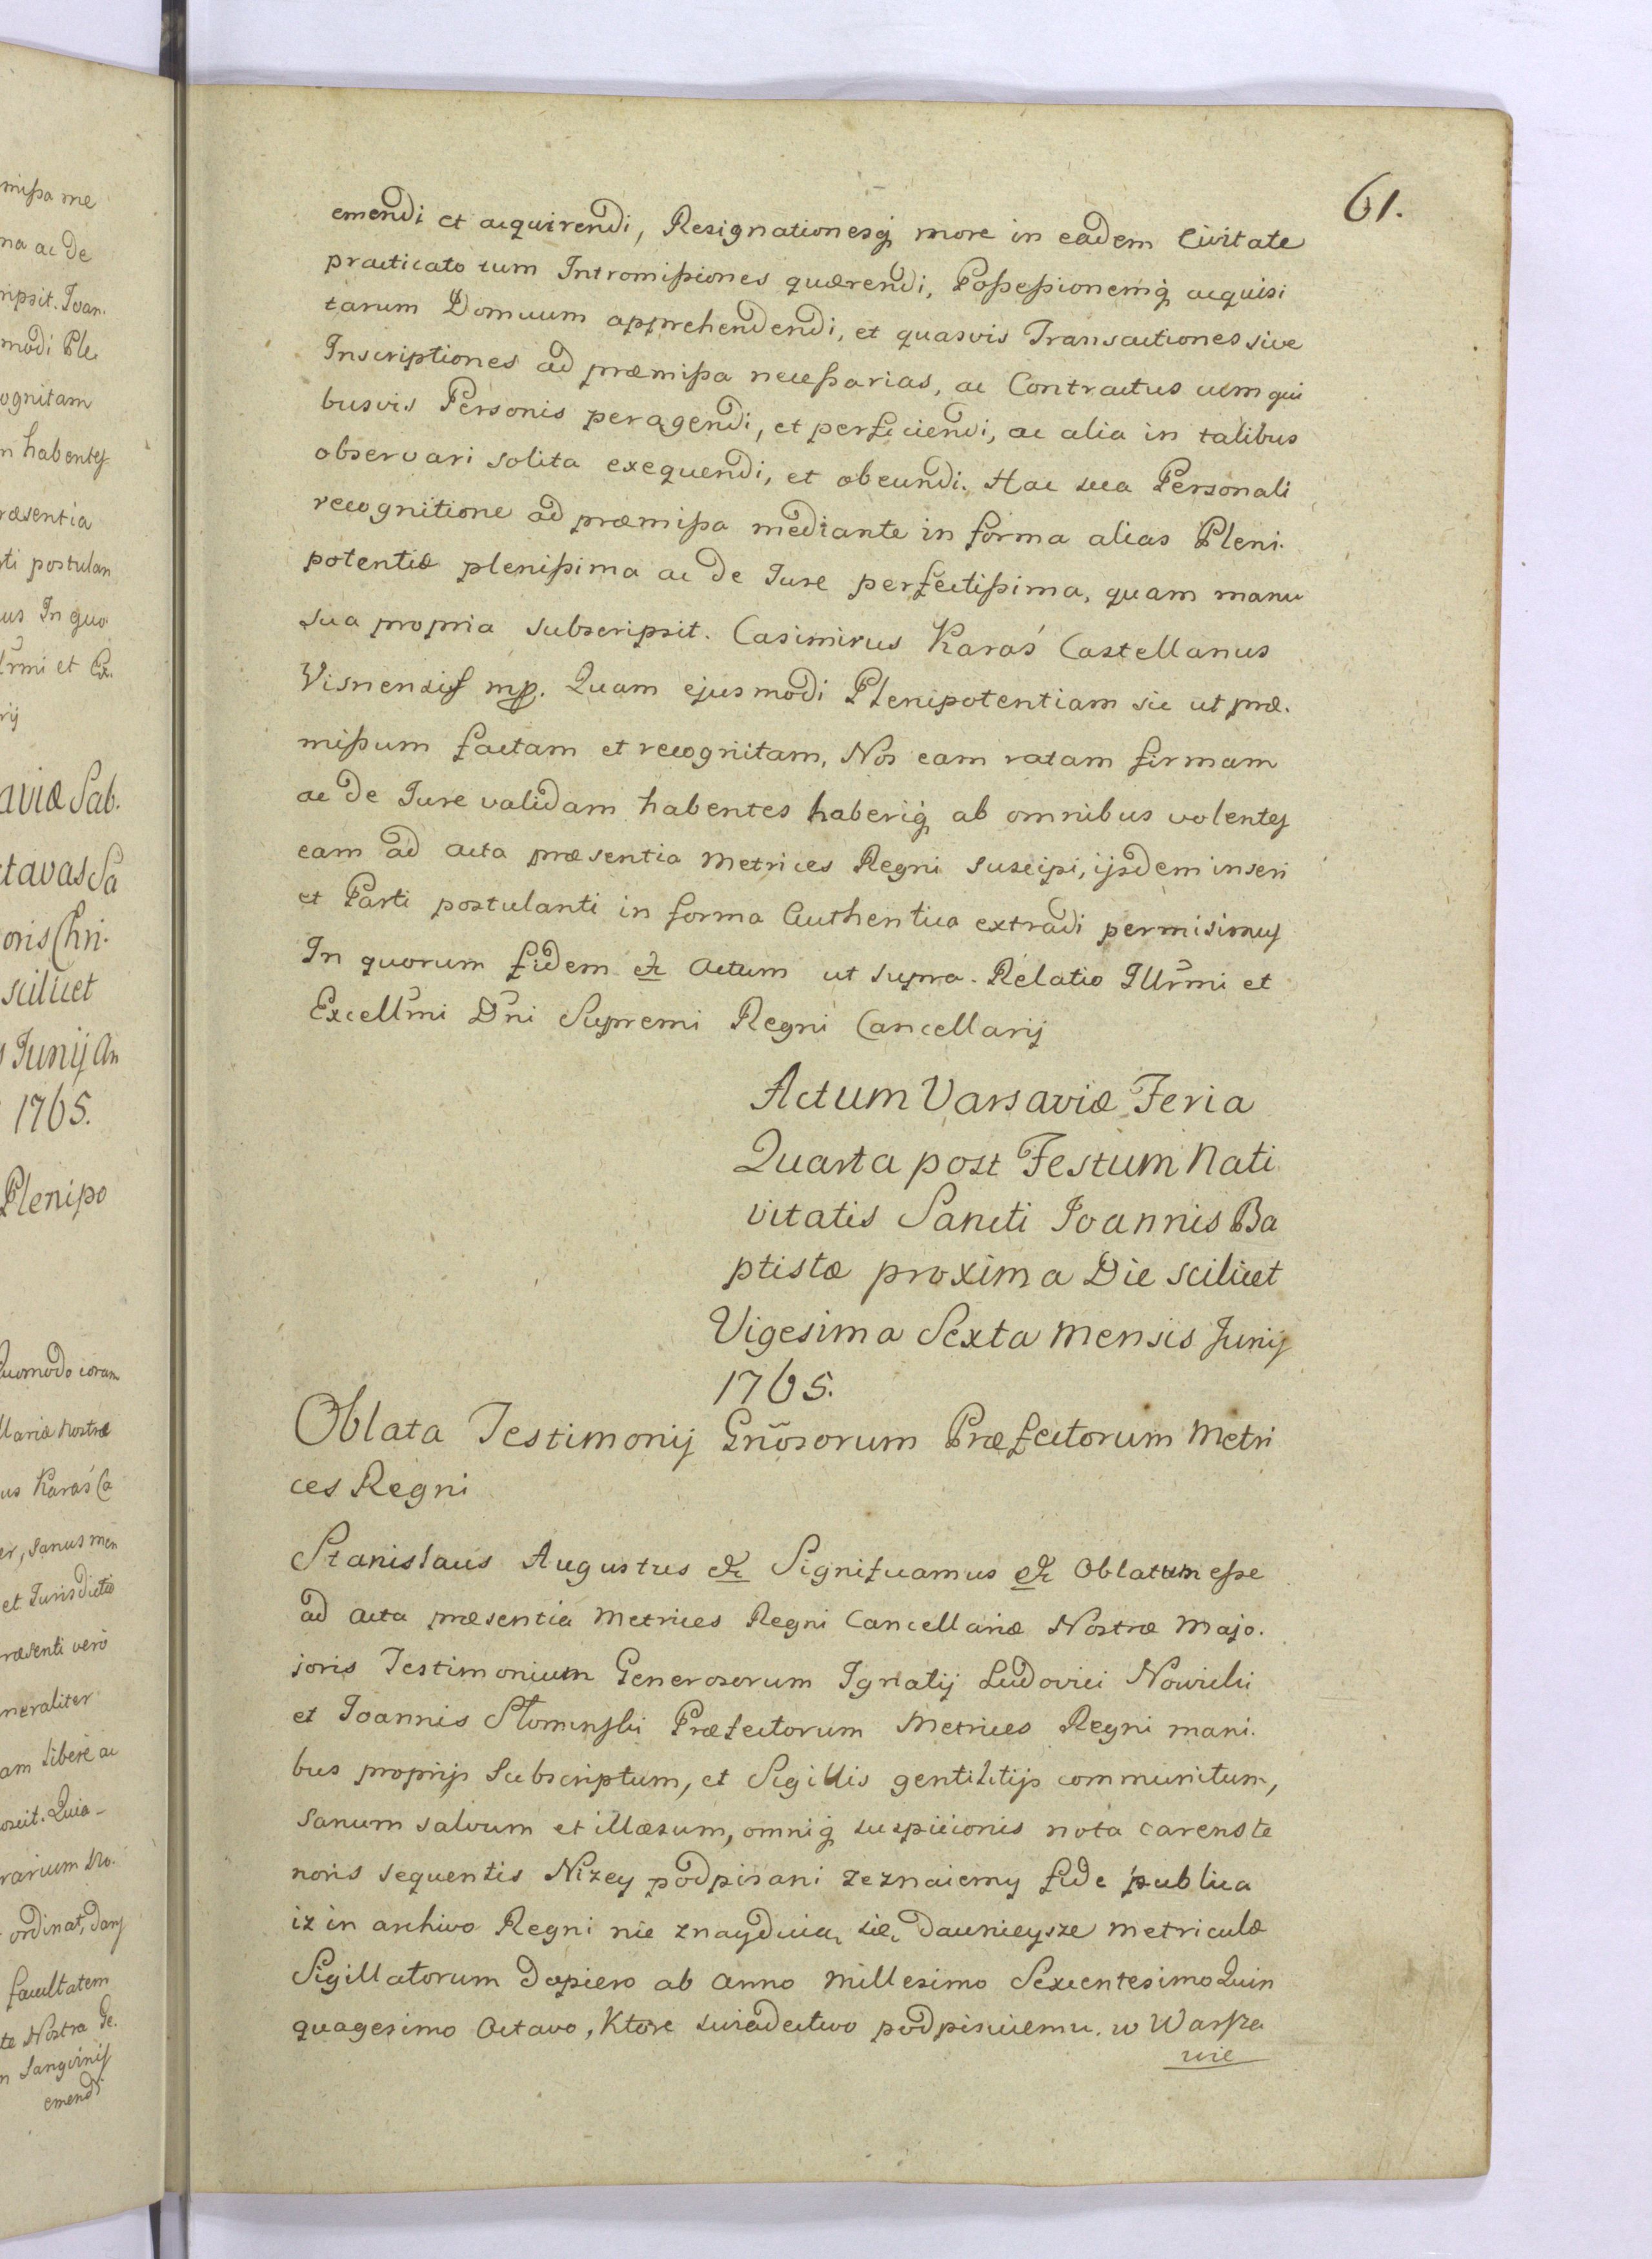 61.
emendi et acquirendi, Resignationesq́ more in eadem Civitate
practicato tum Intromissiones quærendi, Possessionemq́ acquisi
tarum Domuum apprehendendi, et quasvis Transactiones sive
Inscriptiones ad præmissa necessarias, ac Contractus cum qui
busvis Personis peragendi, et perficiendi, ac alia in talibus
observari solita exequendi, et obeundi. Hac sua Personali
recognitione ad præmissa mediante in forma alias Pleni.
potentiæ plenissima ac de Jure perfectissima, quam manu
sua propria subscripsit. Casimirus Karaś Castellanus
Visnensis mp. Quam ejusmodi Plenipotentiam sic ut præ.
missum factam et recognitam, Nos eam ratam firmam
ac de Jure validam habentes haberiq́ ab omnibus volentes
eam ad acta præsentia Metrices Regni suscipi, ijsdem inseri
et Parti postulanti in forma Authentica extradi permisimus
In quorum fidem &c Actum ut supra. Relatio Illr̃mi et
Excellm̃i Dñi Supremi Regni Cancellarij
Actum Varsaviæ Feria
Quarta post Festum Nati
vitatis Sancti Joannis Ba
ptistæ proxima Die scilicet
Vigesima Sexta Mensis Junij
1765.
Oblata Testimonij Gñosorum Præfectorum Metri
ces Regni
Stanislaus Augustus &c Significamus &c Oblatum esse
ad Acta præsentia Metrices Regni Cancellariæ Nostræ Majo.
joris Testimonium Generosorum Ignatij Ludovici Nowicki
et Joannis Słominski Præfectorum Metrices Regni mani.
bus proprijs Subscriptum, et Sigillis gentilitijs communitum,
Sanum salvum et illæsum, omniq́ suspicionis nota carens te
noris sequentis Nizey podpisani zeznaiemy fide publica
iz in archivo Regni nie znayduią się dawnieysze metriculæ
Sigillatorum dopiero ab Anno Millesimo Sexcentesimo Quin
quagesimo Octavo, Ktore swiadectwo podpisuiemy. w Warsza
wie